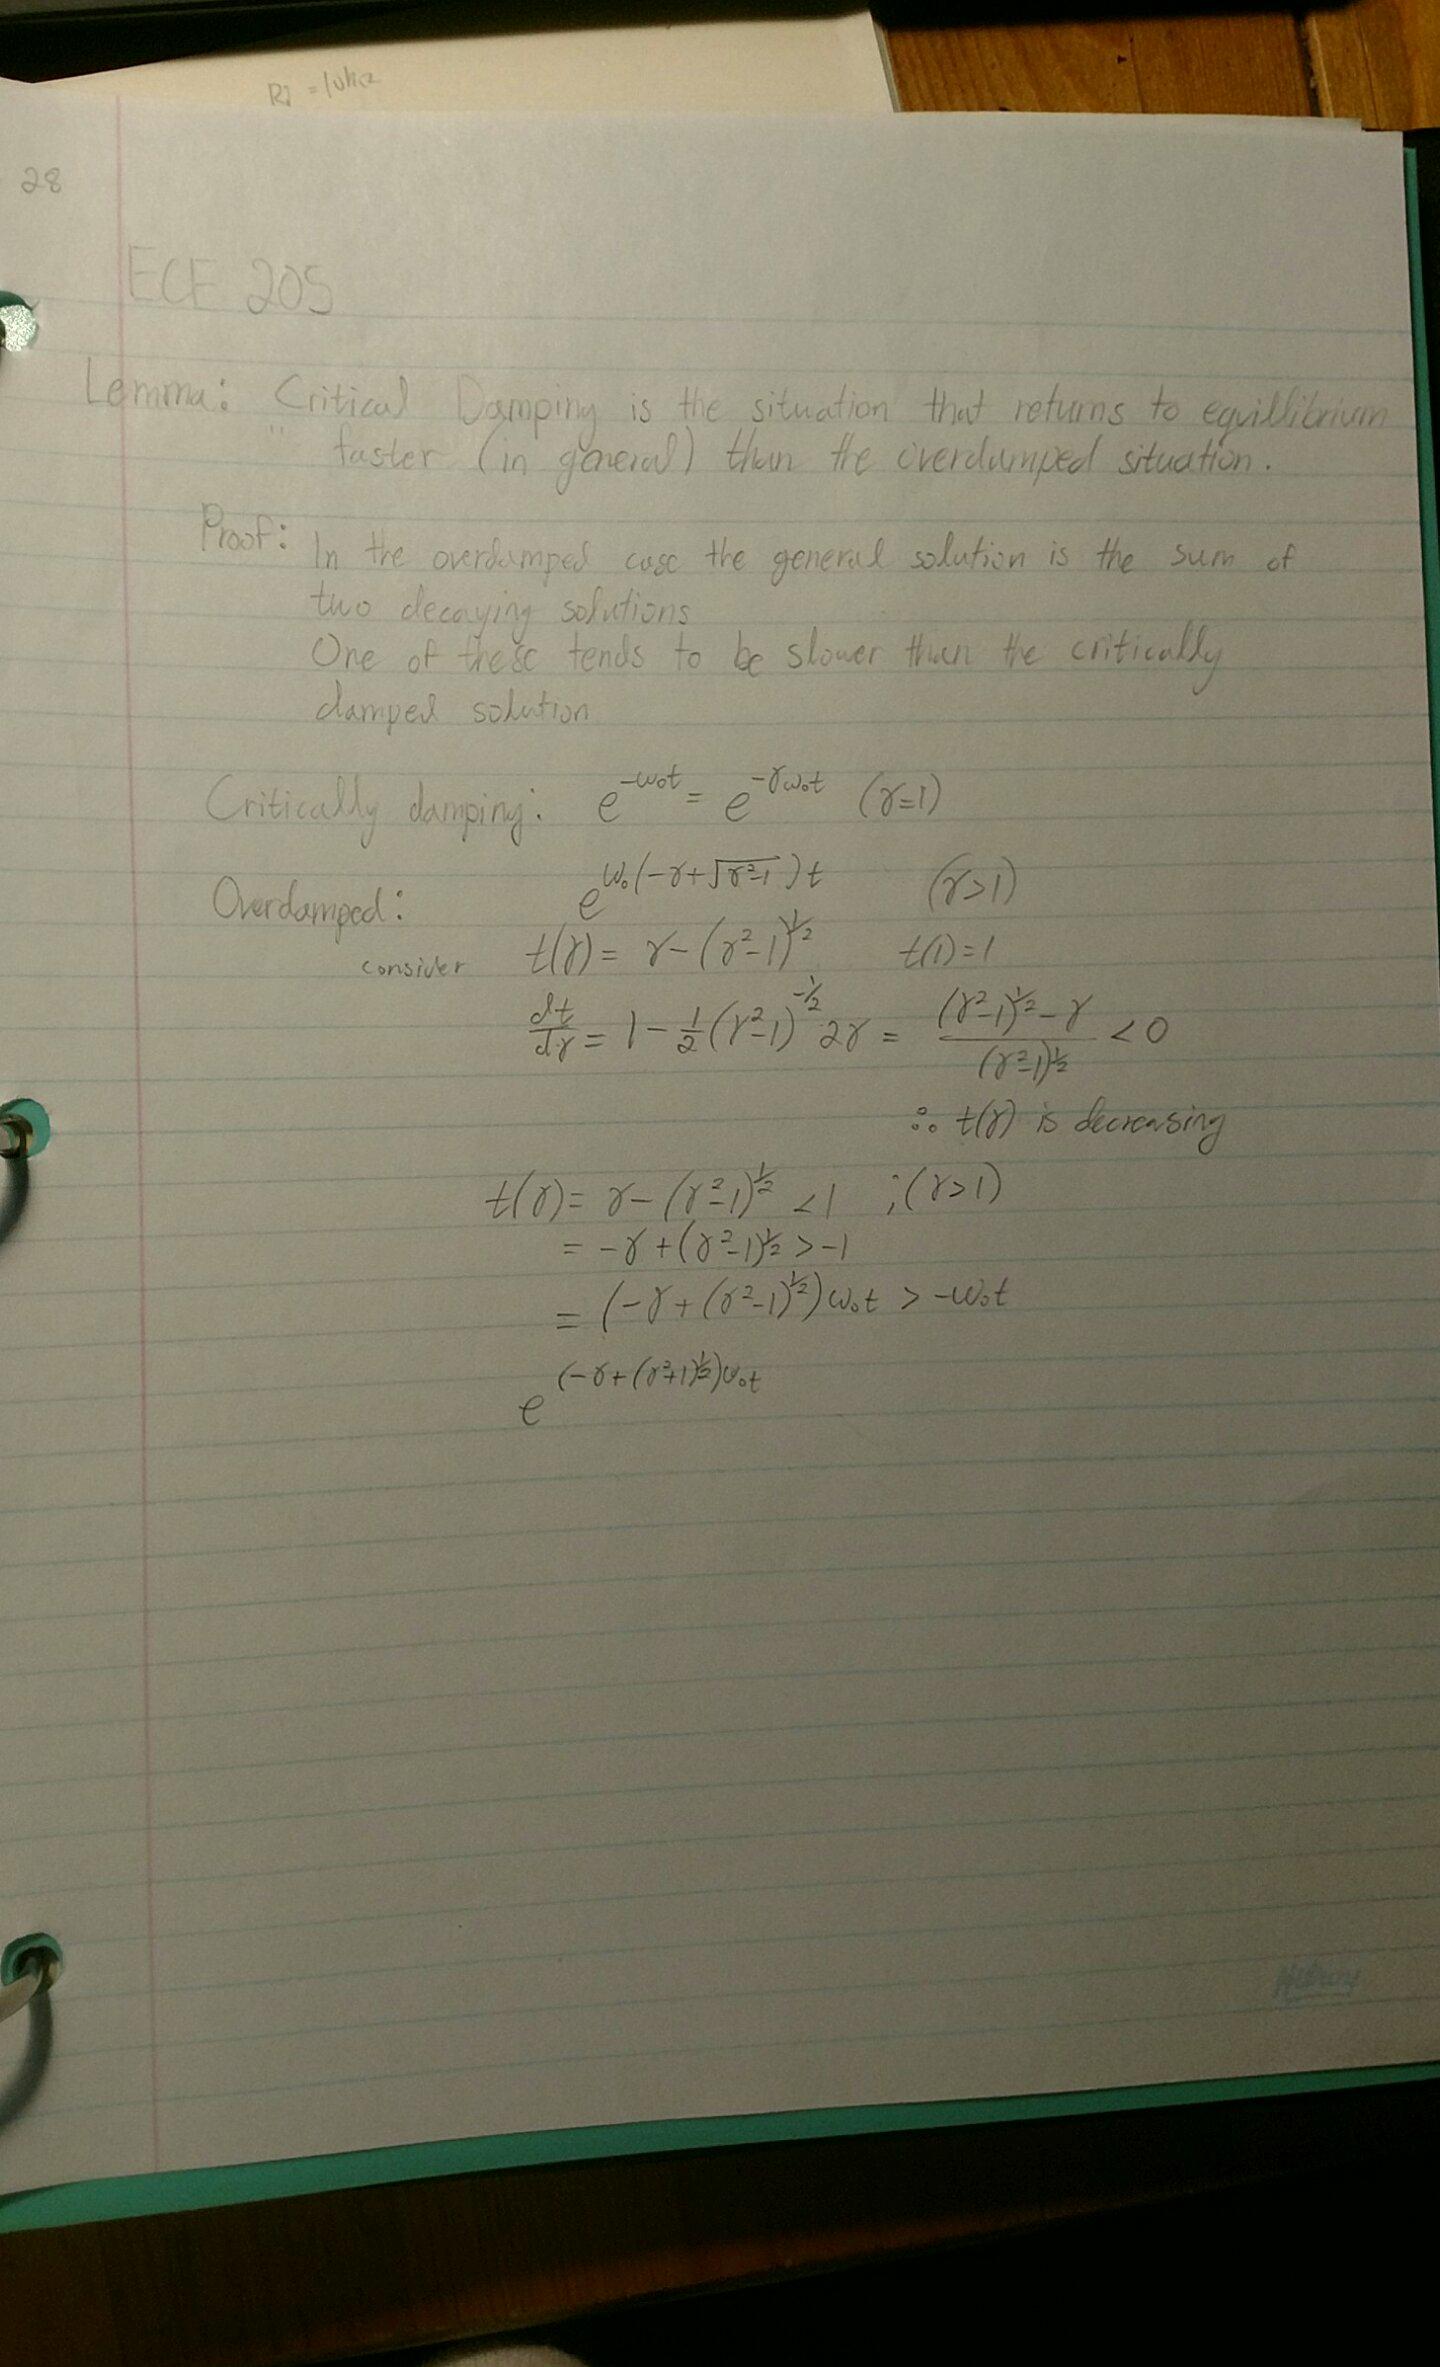 R2 = 10kΩ
28
ECE 205
Lemma: Critical Damping is the situation that returns to equillibrium
faster (in general) than the overdamped situation.
Proof: In the overdamped case the general solution is the sum of
two decaying solutions
One of these tends to be slower than the critically
damped solution
Critically damping: e^{-ω₀t} = e^{-γω₀t} (γ=1)
Overdamped: e^{ω₀(-γ+√(γ²-1))t} (γ>1)
consider t(γ) = γ-(γ²-1)^{1/2} t(1)=1
dt/dγ = 1-1/2(γ²-1)^{-1/2} 2γ = ((γ²-1)^{1/2}-γ)/(γ²-1)^{1/2} < 0
∴ t(γ) is decreasing
t(γ) = γ-(γ²-1)^{1/2} < 1 ;(γ>1)
= -γ+(γ²-1)^{1/2} > -1
= (-γ+(γ²-1)^{1/2})ω₀t > -ω₀t
e^{(-γ+(γ²+1)^{1/2})ω₀t}
Hilroy